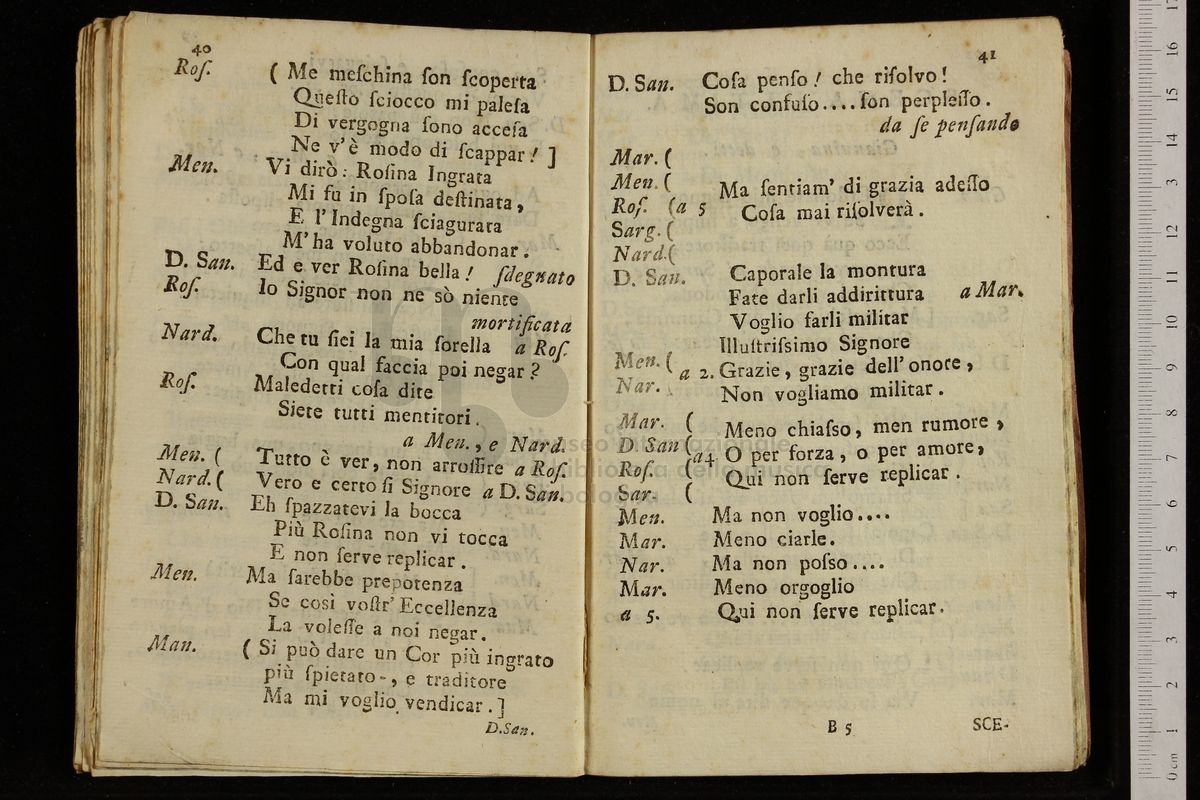 40
Roſ. ( Me meſchina ſon ſcoperta
Queſto ſciocco mi paleſa
Di vergogna ſono acceſa
Ne v'è modo di ſcappar! ]
Men. Vi dirò: Roſina Ingrata
Mi fu in ſpoſa deſtinata,
E l'Indegna ſciagurata
M'ha voluto abbandonar.
D. San. Ed e ver Roſina bella! ſdegnato
Roſ. Io Signor non ne sò niente
mortificata
Nard. Che tu ſiei la mia ſorella a Roſ.
Con qual faccia poi negar?
Roſ. Maledetti coſa dite
Siete tutti mentitori.
a Men., e Nard.
Men. ( Tutto è ver, non arroſſire a Roſ.
Nard. ( Vero e certo ſi Signore a D. San.
D. San. Eh ſpazzatevi la bocca
Più Roſina non vi tocca
E non ſerve replicar.
Men. Ma ſarebbe prepotenza
Se così voſtr' Eccellenza
La voleſſe a noi negar.
Man. ( Si può dare un Cor più ingrato
più ſpietato-, e traditore
Ma mi voglio vendicar. ]
D.San.
41
D. San. Coſa penſo! che riſolvo!
Son confuſo.... ſon perpleſſo.
da ſe penſando
Mar. (
Men. ( Ma ſentiam' di grazia adeſſo
Roſ. (a 5 Coſa mai riſolverà.
Sarg. (
Nard. (
D. San. Caporale la montura
Fate darli addirittura a Mar.
Voglio farli militar
Illuſtriſsimo Signore
Men. ( a 2. Grazie, grazie dell' onore,
Nar. Non vogliamo militar.
Mar. ( Meno chiaſso, men rumore,
D San ( a 4 O per forza, o per amore,
Roſ. ( Qui non ſerve replicar.
Sar. (
Men. Ma non voglio....
Mar. Meno ciarle.
Nar. Ma non poſso....
Mar. Meno orgoglio
a 5. Qui non ſerve replicar.
B 5 SCE-